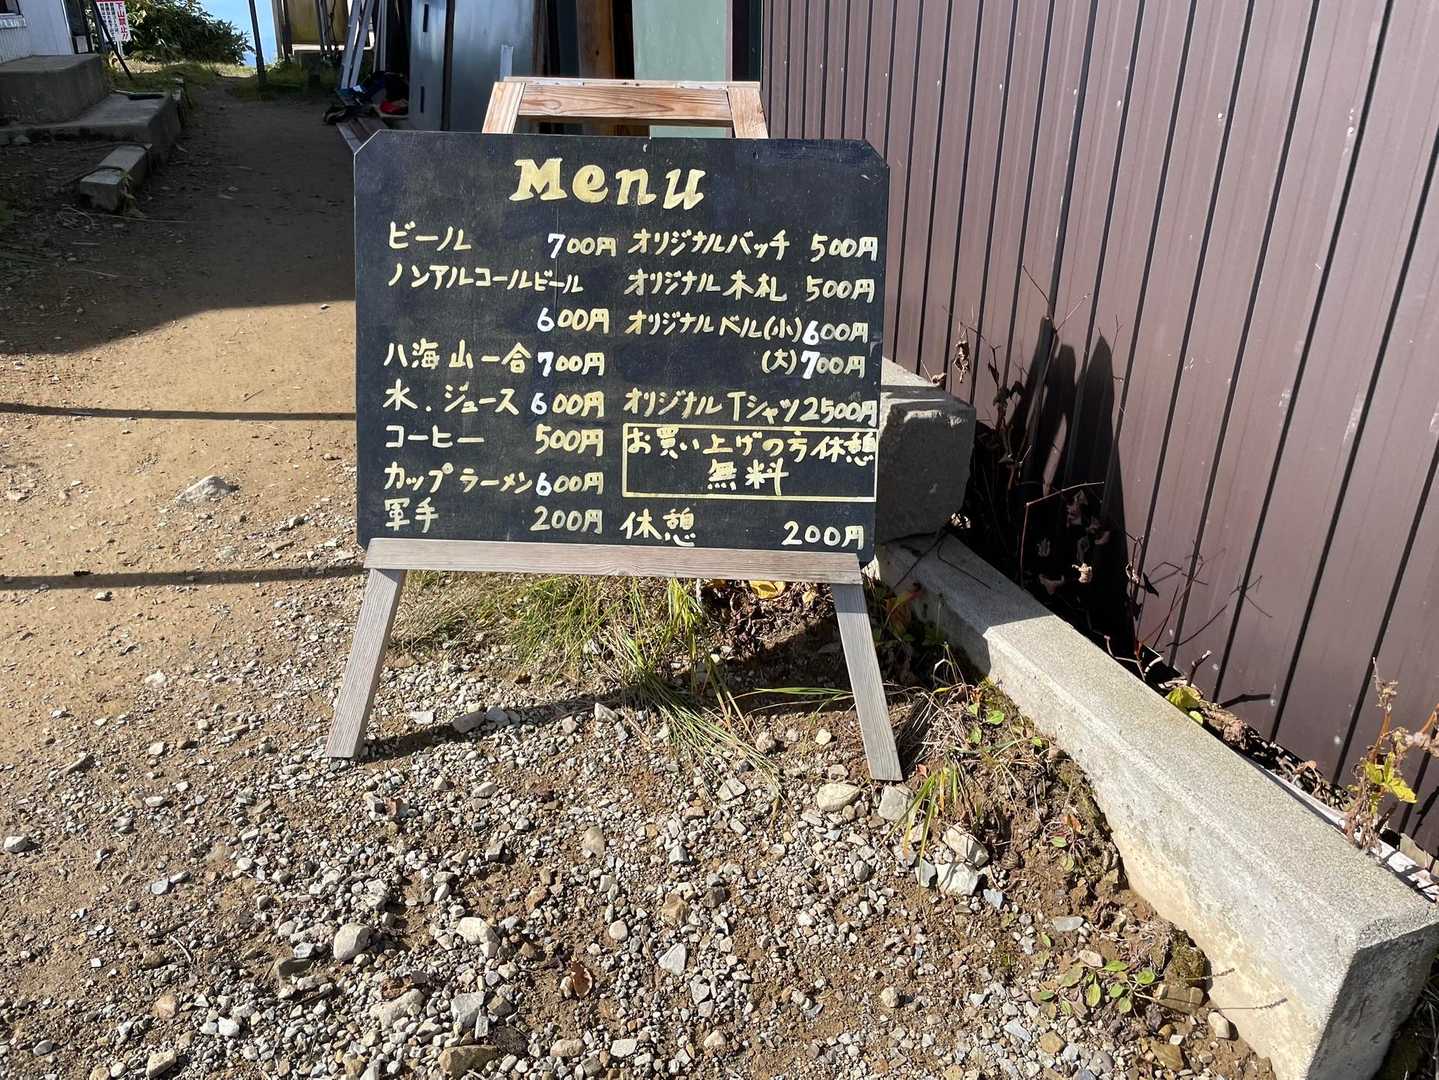 Menu
ビール 700円
ノンアルコールビール
600円
八海山一合 700円
水.ジュース 600円
コーヒー 500円
カップラーメン 600円
軍手 200円
オリジナルバッチ 500円
オリジナル木札 500円
オリジナルベル(小) 600円
(大) 700円
オリジナルTシャツ 2500円
お買い上げの方休憩
無料
休憩 200円